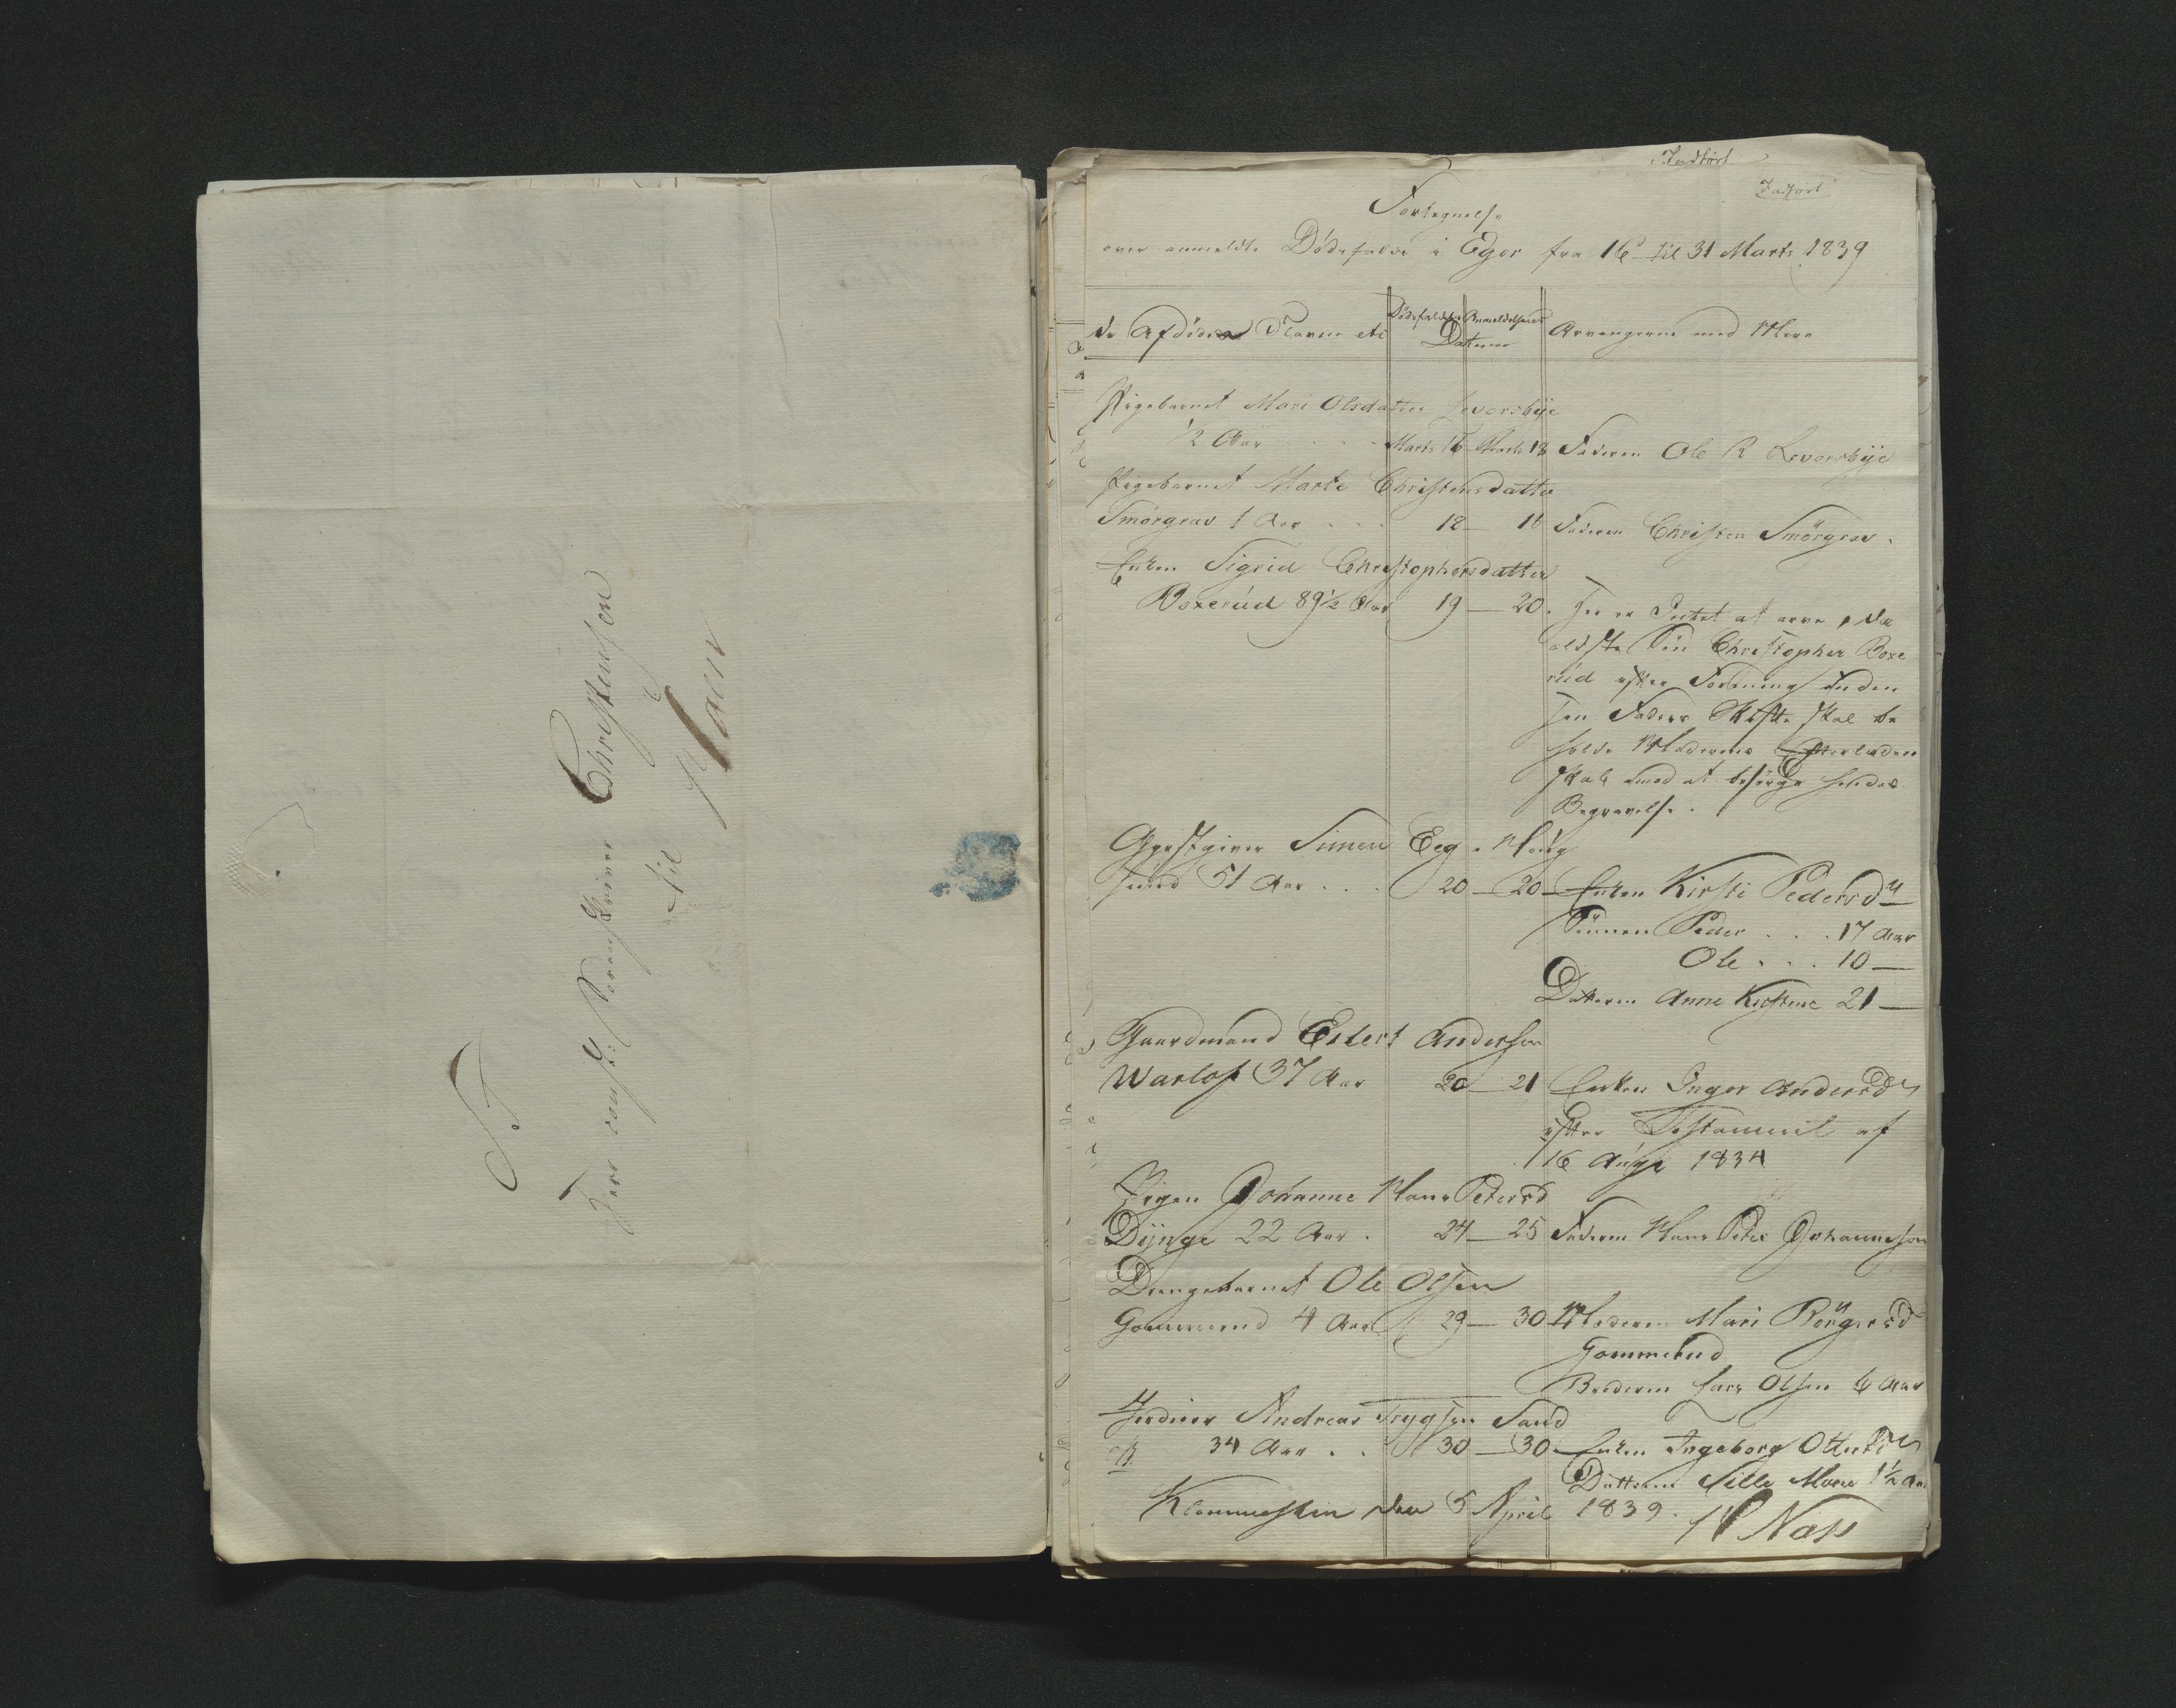 S T
Herr const: Sorenskriver Christensen
til
Haen
Indført
Indført
Fortegnelse
over anmeldte Dødsfald i Eger fra 16 til 31 Marts 1839
De Afdødes Navne etc
Dødsfaldets Anmeldelsens
Datum
Arvingerne med Mere
Pigebarnet Mari Olsdatter Levorsbye
1/2 Aar . . . Marts 16 Marts 18 Faderen Ole R Levorsbye
Pigebarnet Marte Christensdatter
Smörgrav 1 Aar . . . 18 — 18 Faderen Christen Smörgrav.
Enken Sigrid Christophersdatter
Boxerud 89 1/2 Aar 19 — 20. Her er Intet at arve, da
ældste Søn Christopher Boxe
rud efter Forening under
hen Faders Skifte skal be
holde Moderens Efterladen
skab imod at besørge hendes
Begravelse.
Gjæstgiver Simen Eeg i Houg
sund 51 Aar . . . 20 — 20 — Enken Kirsti Pedersdr
Sönnen Peder . . . 17 Aar
Ole . . . 10 —
Datteren Anne Kirstine 21 —
Gaardmand Eilert Andersen
Warlof 37 Aar 20 — 21 Enken Inger Andersdr
efter Testament af
16 Augs 1834
Pigen Johanne Hans Petersd
Dynge 22 Aar . 24 — 25 Faderen Hans Peter Johannesen
Drengebarnet Ole Olsen
Gommerud 4 Aar 29 — 30 Moderen Mari Börgersd
Gommerud
Broderen Lars Olsen 6 Aar
Andreas Trygsen Sand
34 Aar . . 30 — 30 — Enken Ingeborg Ottersdr
Datteren Sille Marie 1 1/2 Aar
Klommesten den 5 April 1839.
H Næss